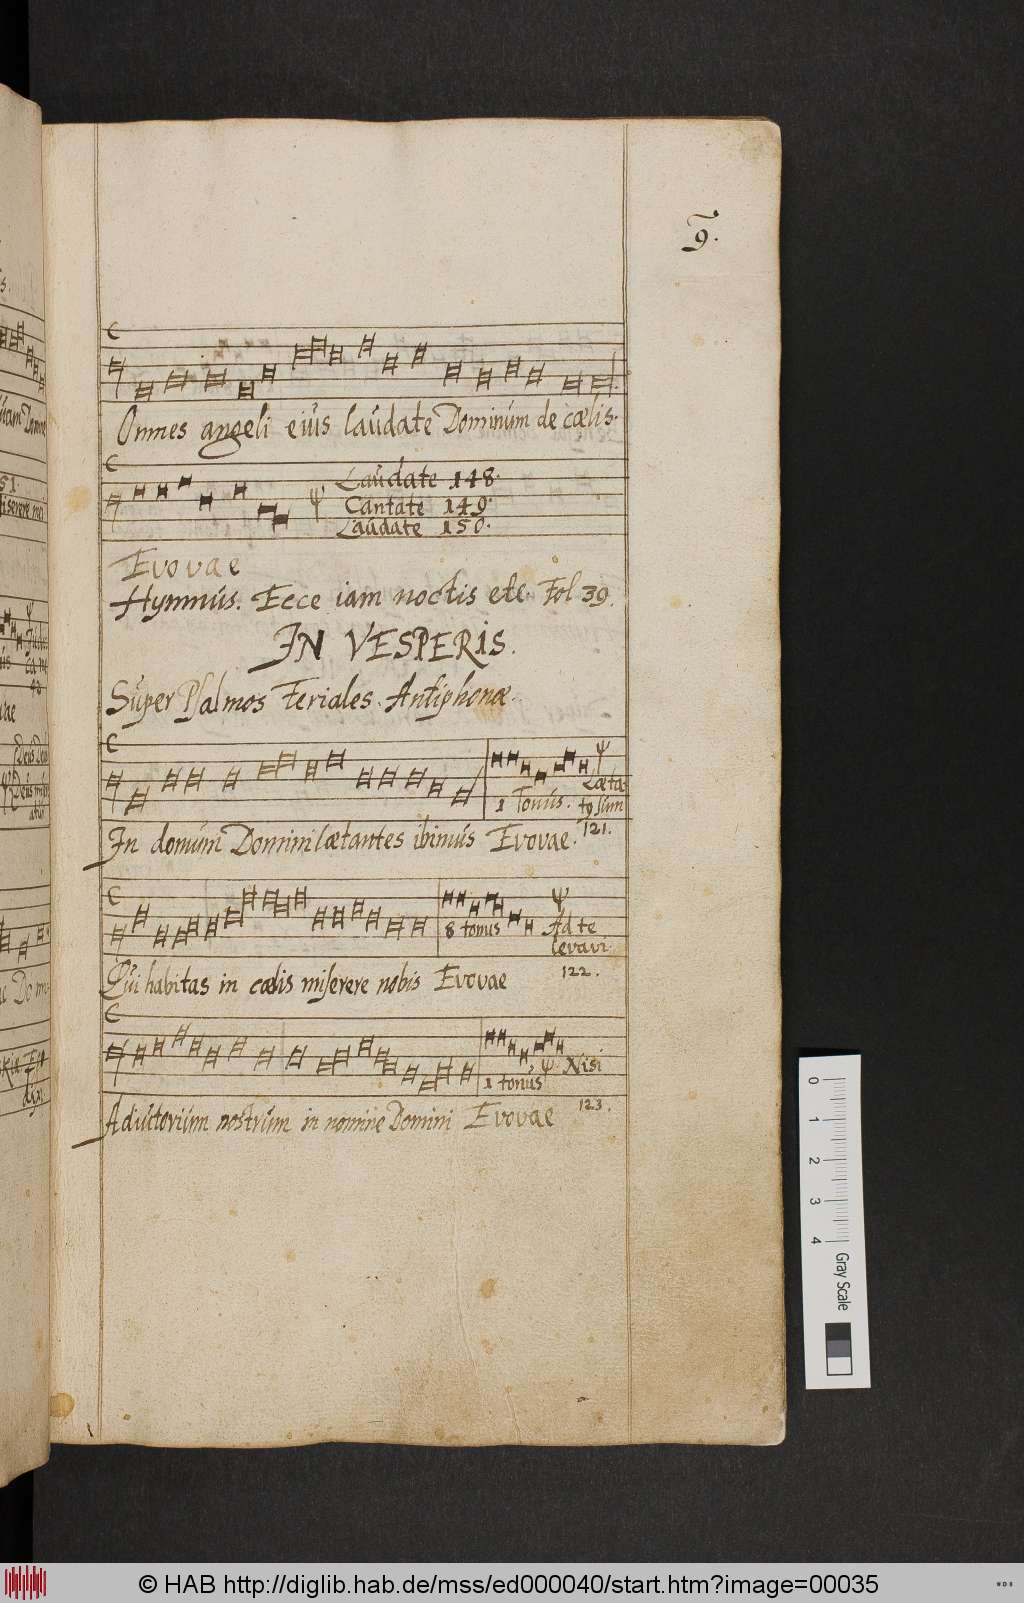 9.
Omnes angeli eiús laúdate Dominúm de cælis.
Laúdate 148.
Cantate 149.
Laúdate 150.
Evovae
Hymnús. Ecce iam noctis etc. Fol 39.
IN VESPERIS.
Súper Psalmos Feriales. Antiphonæ.
1 Tonús. Læta-
tq súm
121.
In domúm Domini lætantes ibimús Evovae.
8 tonus Ad te
levavi.
122.
Qui habitas in cælis miserere nobis Evovae
1 tonús Nisi
123.
Adiútoriúm nostrúm in nomine Domini Evovae
0 1 2 3 4 Gray Scale
© HAB http://diglib.hab.de/mss/ed000040/start.htm?image=00035